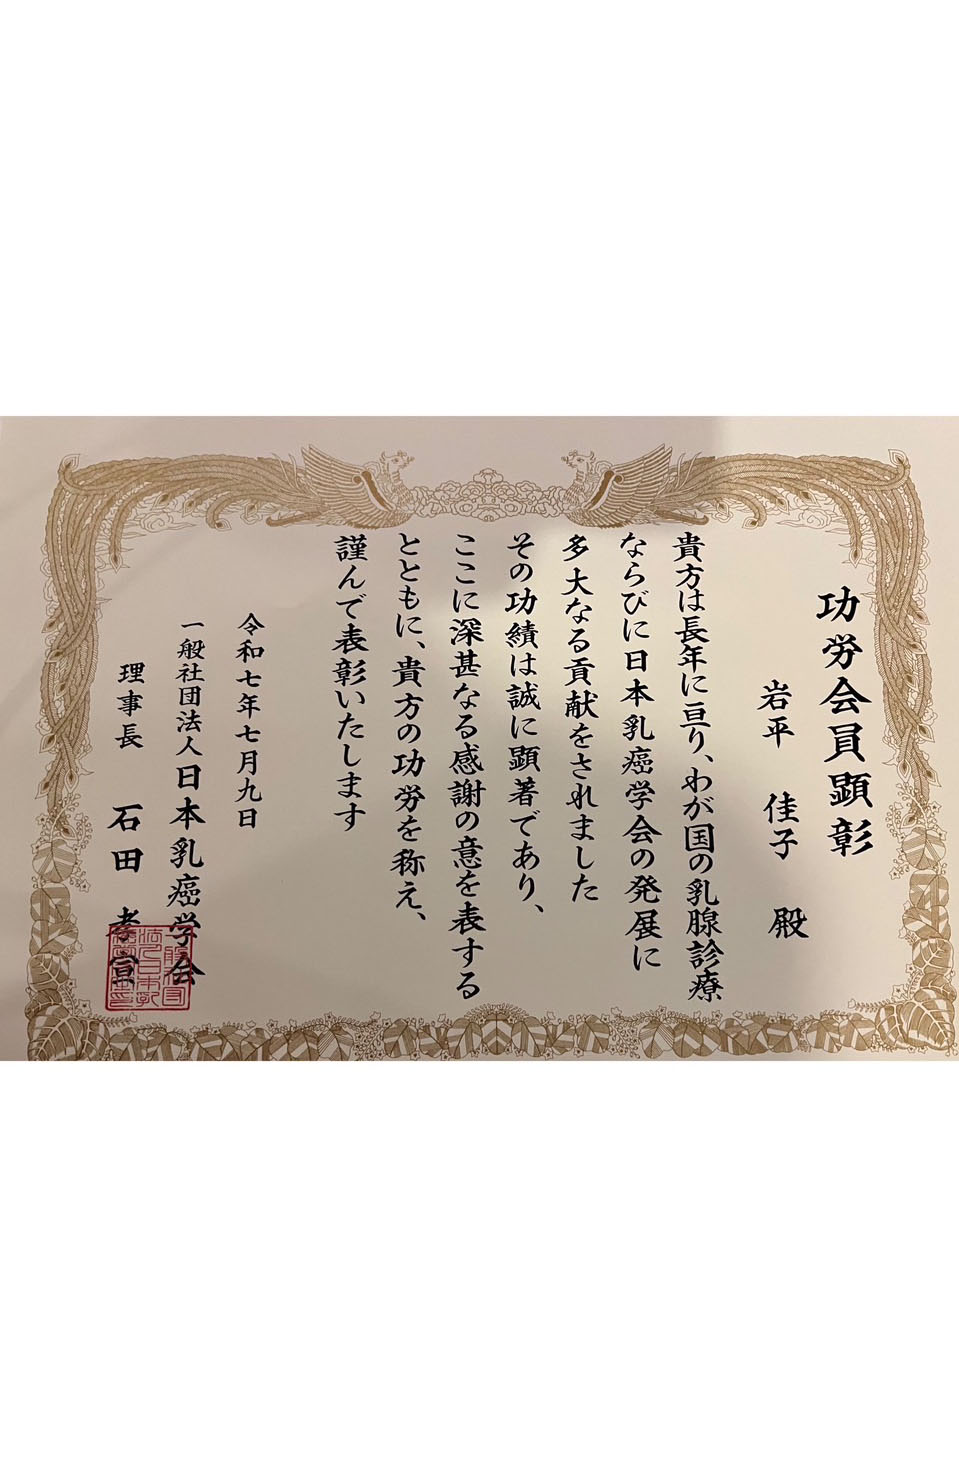 功労会員顕彰
岩平 佳子 殿
貴方は長年に亘り、わが国の乳腺診療
ならびに日本乳癌学会の発展に
多大なる貢献をされました
その功績は誠に顕著であり、
ここに深甚なる感謝の意を表する
とともに、貴方の功労を称え、
謹んで表彰いたします
令和七年七月九日
一般社団法人日本乳癌学会
理事長 石田 孝宣